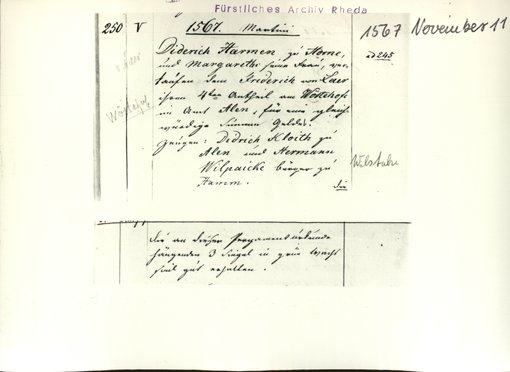 Fürstliches Archiv Rheda
250 V 1567. Martini
1567 November 11
Diderich Harmen zu Horne,
und Margarethe seine Frau, ver-
kaufen dem Friederich von Laer
ihren 4ten Antheil am Wöstehofe
im Amt Alen, für eine gleich-
würdige Summe Geldes.
Zeugen: Didrich Kloith zu
Alen und Hermann
Wilpaicke bürger zu
Hamm.
Die
die an dieser Pergamenturkunde
hängenden 3 Siegel in grün Wachs
sind gut erhalten.